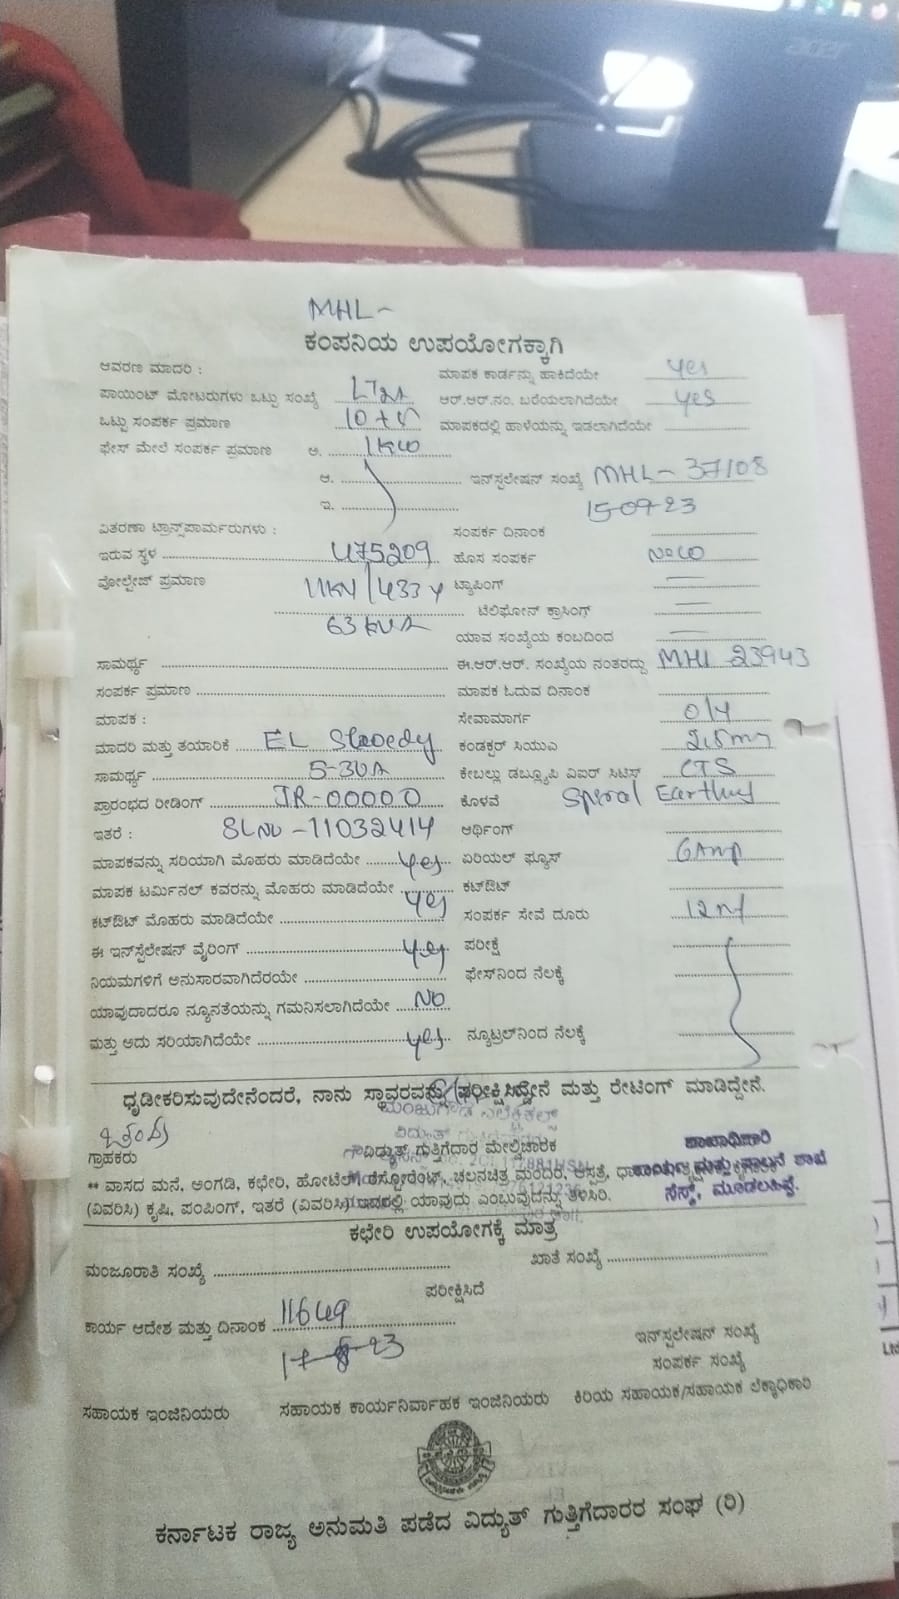 acer
MHL -
ಕಂಪನಿಯ ಉಪಯೋಗಕ್ಕಾಗಿ
ಆವರಣ ಮಾದರಿ : ಮಾಪಕ ಕಾರ್ಡನ್ನು ಹಾಕಿದೆಯೇ yes
ಪಾಯಿಂಟ್ ಮೋಟರುಗಳು ಒಟ್ಟು ಸಂಖ್ಯೆ ಆರ್.ಆರ್.ನಂ. ಬರೆಯಲಾಗಿದೆಯೇ yes
ಒಟ್ಟು ಸಂಪರ್ಕ ಪ್ರಮಾಣ ಮಾಪಕದಲ್ಲಿ ಹಾಳೆಯನ್ನು ಇಡಲಾಗಿದೆಯೇ
ಫೇಸ್ ಮೇಲೆ ಸಂಪರ್ಕ ಪ್ರಮಾಣ ಅ. 1KW
ಆ. ಇನ್‌ಸ್ಟಲೇಷನ್ ಸಂಖ್ಯೆ MHL - 37108
ಇ. 15-09-23
ವಿತರಣಾ ಟ್ರಾನ್ಸ್‌ಪಾರ್ಮರುಗಳು : ಸಂಪರ್ಕ ದಿನಾಂಕ
ಇರುವ ಸ್ಥಳ 475209 ಹೊಸ ಸಂಪರ್ಕ
ವೋಲ್ಟೇಜ್ ಪ್ರಮಾಣ 11KV/433V ಟ್ಯಾಪಿಂಗ್
ಟೆಲಿಫೋನ್ ಕ್ರಾಸಿಂಗ್
63 KVA ಯಾವ ಸಂಖ್ಯೆಯ ಕಂಬದಿಂದ
ಸಾಮರ್ಥ್ಯ ಈ.ಆರ್.ಆರ್. ಸಂಖ್ಯೆಯ ನಂತರದ್ದು MHL 23943
ಸಂಪರ್ಕ ಪ್ರಮಾಣ ಮಾಪಕ ಓದುವ ದಿನಾಂಕ
ಮಾಪಕ : ಸೇವಾಮಾರ್ಗ O/H
ಮಾದರಿ ಮತ್ತು ತಯಾರಿಕೆ EL ಕಂಡಕ್ಟರ್ ಸಿಯುಎ
ಸಾಮರ್ಥ್ಯ 5-30A ಕೇಬಲ್ಲು ಡಬ್ಲ್ಯೂಪಿ ವಿಐರ್ ಸಿಟಿಸ್ CTS
ಪ್ರಾರಂಭದ ರೀಡಿಂಗ್ IR-00000 ಕೊಳವೆ Spiral Earthing
ಇತರೆ : SL NO - 11032414 ಆರ್ಥಿಂಗ್
ಮಾಪಕವನ್ನು ಸರಿಯಾಗಿ ಮೊಹರು ಮಾಡಿದೆಯೇ yes ಏರಿಯಲ್ ಫ್ಯೂಸ್ 6Amp
ಮಾಪಕ ಟರ್ಮಿನಲ್ ಕವರನ್ನು ಮೊಹರು ಮಾಡಿದೆಯೇ yes ಕಟ್ಔಟ್
ಕಟ್ಔಟ್ ಮೊಹರು ಮಾಡಿದೆಯೇ ಸಂಪರ್ಕ ಸೇವೆ ದೂರು
ಈ ಇನ್‌ಸ್ಟಲೇಷನ್ ವೈರಿಂಗ್ yes ಪರೀಕ್ಷೆ
ನಿಯಮಗಳಿಗೆ ಅನುಸಾರವಾಗಿದೆರಯೇ ಫೇಸ್‌ನಿಂದ ನೆಲಕ್ಕೆ
ಯಾವುದಾದರೂ ನ್ಯೂನತೆಯನ್ನು ಗಮನಿಸಲಾಗಿದೆಯೇ NO
ಮತ್ತು ಅದು ಸರಿಯಾಗಿದೆಯೇ yes ನ್ಯೂಟ್ರಲ್‌ನಿಂದ ನೆಲಕ್ಕೆ
ಧೃಡೀಕರಿಸುವುದೇನೆಂದರೆ, ನಾನು ಸ್ಥಾವರವನ್ನು ಪರೀಕ್ಷಿಸಿದ್ದೇನೆ ಮತ್ತು ರೇಟಿಂಗ್ ಮಾಡಿದ್ದೇನೆ.
ಗ್ರಾಹಕರು ವಿದ್ಯುತ್ ಗುತ್ತಿಗೆದಾರ ಮೇಲ್ವಿಚಾರಕ
ಶಾಖಾಧಿಕಾರಿ
ಕಾರ್ಯ ಮತ್ತು ಪಾಲನೆ ಶಾಖೆ
ಸೆಸ್ಕ್, ಮೂಡಲಹಿಪ್ಪೆ.
** ವಾಸದ ಮನೆ, ಅಂಗಡಿ, ಕಛೇರಿ, ಹೋಟೆಲ್ ರೆಸ್ಟೋರೆಂಟ್, ಚಲನಚಿತ್ರ ಮಂದಿರ, ಆಸ್ಪತ್ರೆ,
(ವಿವರಿಸಿ) ಕೃಷಿ, ಪಂಪಿಂಗ್, ಇತರೆ (ವಿವರಿಸಿ) ಇವರಲ್ಲಿ ಯಾವುದು ಎಂಬುವುದನ್ನು ತಿಳಿಸಿರಿ.
ಕಛೇರಿ ಉಪಯೋಗಕ್ಕೆ ಮಾತ್ರ
ಮಂಜೂರಾತಿ ಸಂಖ್ಯೆ ಖಾತೆ ಸಂಖ್ಯೆ
ಪರೀಕ್ಷಿಸಿದೆ
ಕಾರ್ಯ ಆದೇಶ ಮತ್ತು ದಿನಾಂಕ 11649
ಇನ್‌ಸ್ಟಲೇಷನ್ ಸಂಖ್ಯೆ
17-8-23 ಸಂಪರ್ಕ ಸಂಖ್ಯೆ
ಸಹಾಯಕ ಇಂಜಿನಿಯರು ಸಹಾಯಕ ಕಾರ್ಯನಿರ್ವಾಹಕ ಇಂಜಿನಿಯರು ಕಿರಿಯ ಸಹಾಯಕ/ಸಹಾಯಕ ಲೆಕ್ಕಾಧಿಕಾರಿ
ಕರ್ನಾಟಕ ರಾಜ್ಯ ಅನುಮತಿ ಪಡೆದ ವಿದ್ಯುತ್ ಗುತ್ತಿಗೆದಾರರ ಸಂಘ (ರಿ)